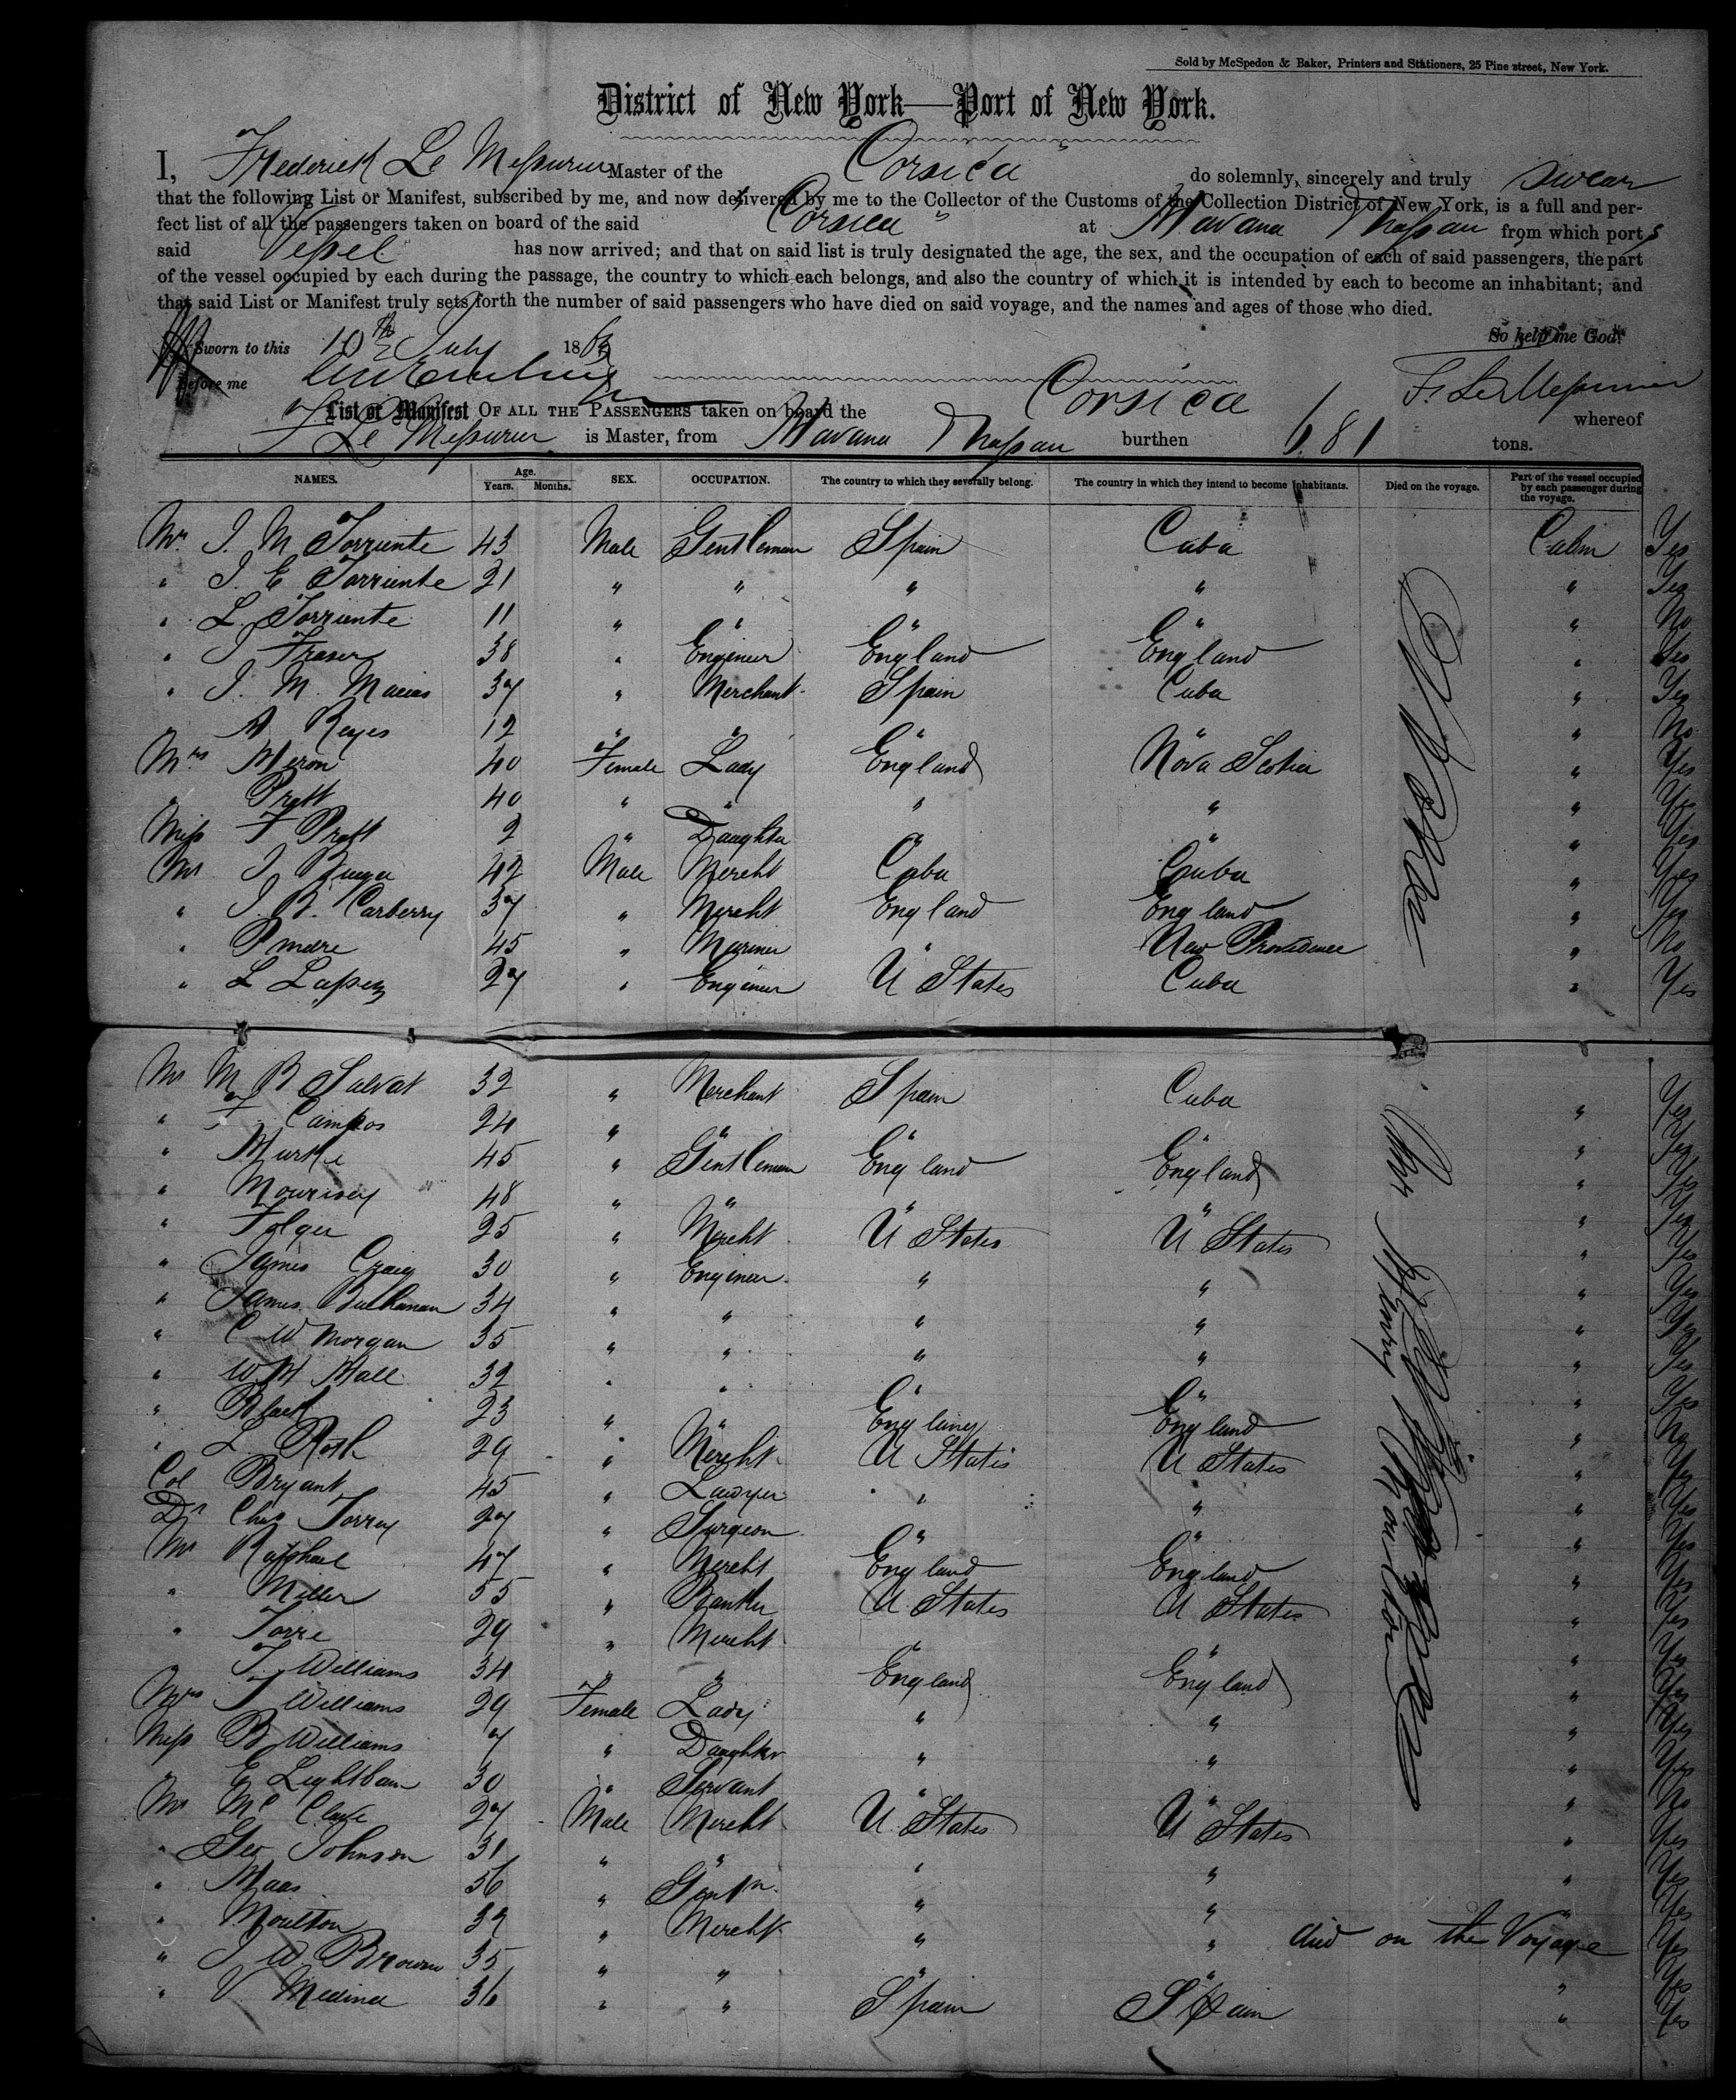 Sold by McSpedon & Baker, Printers and Stationers, 25 Pine street, New York.
District of New York—Port of New York.
I, Frederick Le Messurier Master of the "Corsica" do solemnly, sincerely and truly swear
that the following List or Manifest, subscribed by me, and now delivered by me to the Collector of the Customs of the Collection District of New York, is a full and per-
fect list of all the passengers taken on board of the said "Corsica" at Havana & Nassau from which ports
said Vessel has now arrived; and that on said list is truly designated the age, the sex, and the occupation of each of said passengers, the part
of the vessel occupied by each during the passage, the country to which each belongs, and also the country of which it is intended by each to become an inhabitant; and
that said List or Manifest truly sets forth the number of said passengers who have died on said voyage, and the names and ages of those who died.
So help me God.
Sworn to this 10th July 186
Before me
F. Le Messurier
List or Manifest OF ALL THE PASSENGERS taken on board the Corsica whereof
F Le Messurier is Master, from Havana & Nassau burthen tons.
NAMES. Age. Years. Months. SEX. OCCUPATION. The country to which they severally belong. The country in which they intend to become inhabitants. Died on the voyage. Part of the vessel occupied by each passenger during the voyage.
Mr. J. M Torriente 43 Male Gentleman Spain Cuba Cabin Yes
" J. E Torriente 21 " " " " " Yes
" L. Torriente 11 " " " " " No
" J Fraser 38 " Engineer England England " Yes
" J. M. Macias 37 " Merchant Spain Cuba " Yes
" A Reyes 12 " " " " " No
Mrs Heron 40 Female Lady England Nova Scotia " Yes
" Pratt 40 " " " " " Yes
Miss F Pratt 2 " Daughter " " " Yes
Mr J 42 Male Mercht Cuba Cuba " Yes
" J. B. Carberry 37 " Mercht England England " Yes
" 45 " Mariner " New Providence " No
" L 27 " Engineer U States Cuba " Yes
Mr M B Salvat 32 " Merchant Spain Cuba " Yes
" F. Campos 24 " " " " " Yes
" 45 " Gentleman England England " Yes
" 48 " " " " " Yes
" Folger 25 " Mercht U States U States " Yes
" James Craig 30 " Engineer " " " Yes
" James Buchanan 34 " " " " " Yes
" C W Morgan 35 " " " " " Yes
" W H Hall 32 " " " " " Yes
" Black 23 " " England England " No
" L. 29 " Mercht U States U States " Yes
Col Bryant 45 " Lawyer " " " Yes
Dr Chas Torrey 27 " Surgeon " " " Yes
Mr Raphael 47 " Mercht England England " Yes
" Miller 55 " Banker U States U States " Yes
" Torre 29 " Mercht " " " Yes
" T. Williams 34 " " England England " Yes
Mrs T Williams 29 Female Lady " " " Yes
Miss B Williams 7 " Daughter " " " Yes
" E 30 " Servant " " " No
Mr Mc 27 Male Mercht U States U States " Yes
" Geo Johnson 31 " " " " " Yes
" Maas 56 " Gentn. " " " Yes
" Moulton 32 " Mercht " " died on the Voyage Yes
" J W Brown 35 " " " " " Yes
" V. Medina 36 " " Spain Spain " Yes